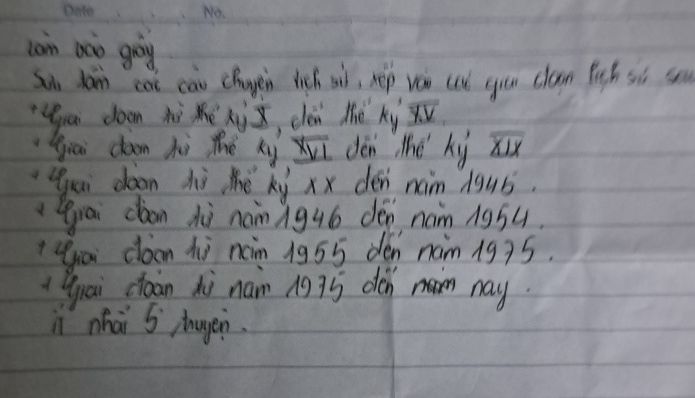 Date No.
Làm vào giấy
Sưu tầm các câu chuyện lịch sử, xếp vào các giai đoạn lịch sử sau
+ Giai đoạn từ thế kỷ X đến thế kỷ XV
+ Giai đoạn từ thế kỷ XVI đến thế kỷ XIX
+ Giai đoạn từ thế kỷ XX đến năm 1945.
+ Giai đoạn từ năm 1946 đến năm 1954.
+ Giai đoạn từ năm 1955 đến năm 1975.
+ Giai đoạn từ năm 1975 đến nay.
ít nhất 5 truyện.